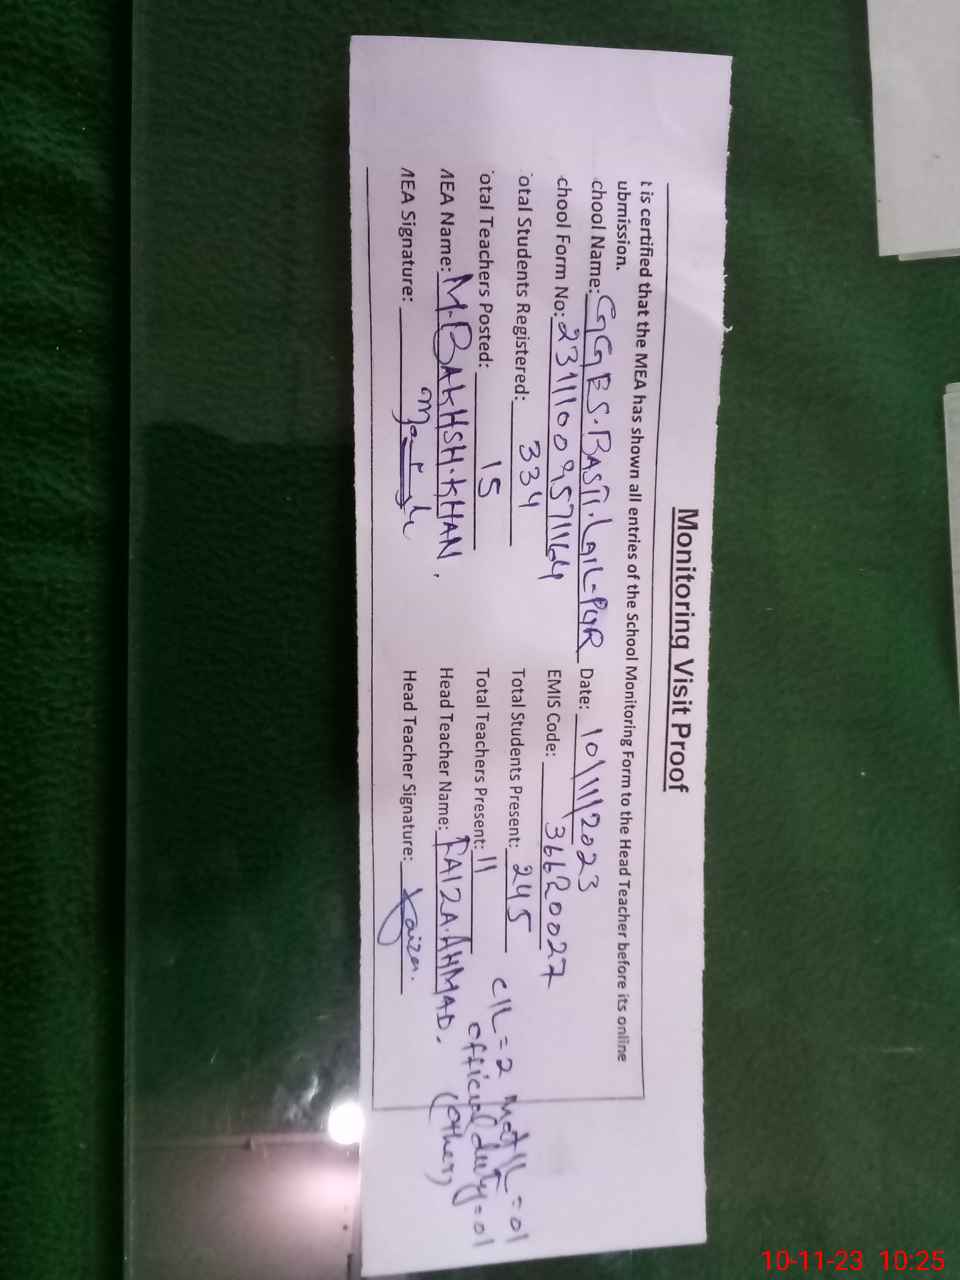 Monitoring Visit Proof
t is certified that the MEA has shown all entries of the School Monitoring Form to the Head Teacher before its online
ubmission.
chool Name: GGBS.BASTI.LAIL-PUR Date: 10/11/2023
chool Form No: 23111009571164 EMIS Code: 36620027
otal Students Registered: 334 Total Students Present: 245
otal Teachers Posted: 15 Total Teachers Present: 11
C/L = 2 Mat/L = 01
official duty = 01
(Other)
MEA Name: M.BAKHSH.KHAN. Head Teacher Name: FAIZA.AHMAD.
MEA Signature: Head Teacher Signature: Faiza.
10-11-23 10:25